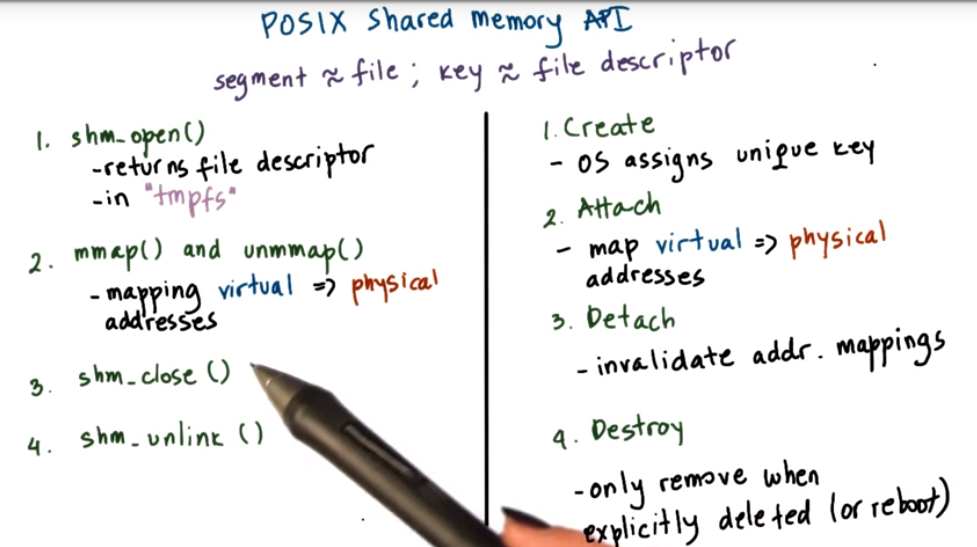 POSIX Shared Memory API
segment ≈ file; key ≈ file descriptor
1. shm_open()
-returns file descriptor
-in "tmpfs"
2. mmap() and unmmap()
-mapping virtual => physical
addresses
3. shm_close()
4. shm_unlink()
1. Create
- OS assigns unique key
2. Attach
- map virtual => physical
addresses
3. Detach
-invalidate addr. mappings
4. Destroy
-only remove when
explicitly deleted (or reboot)